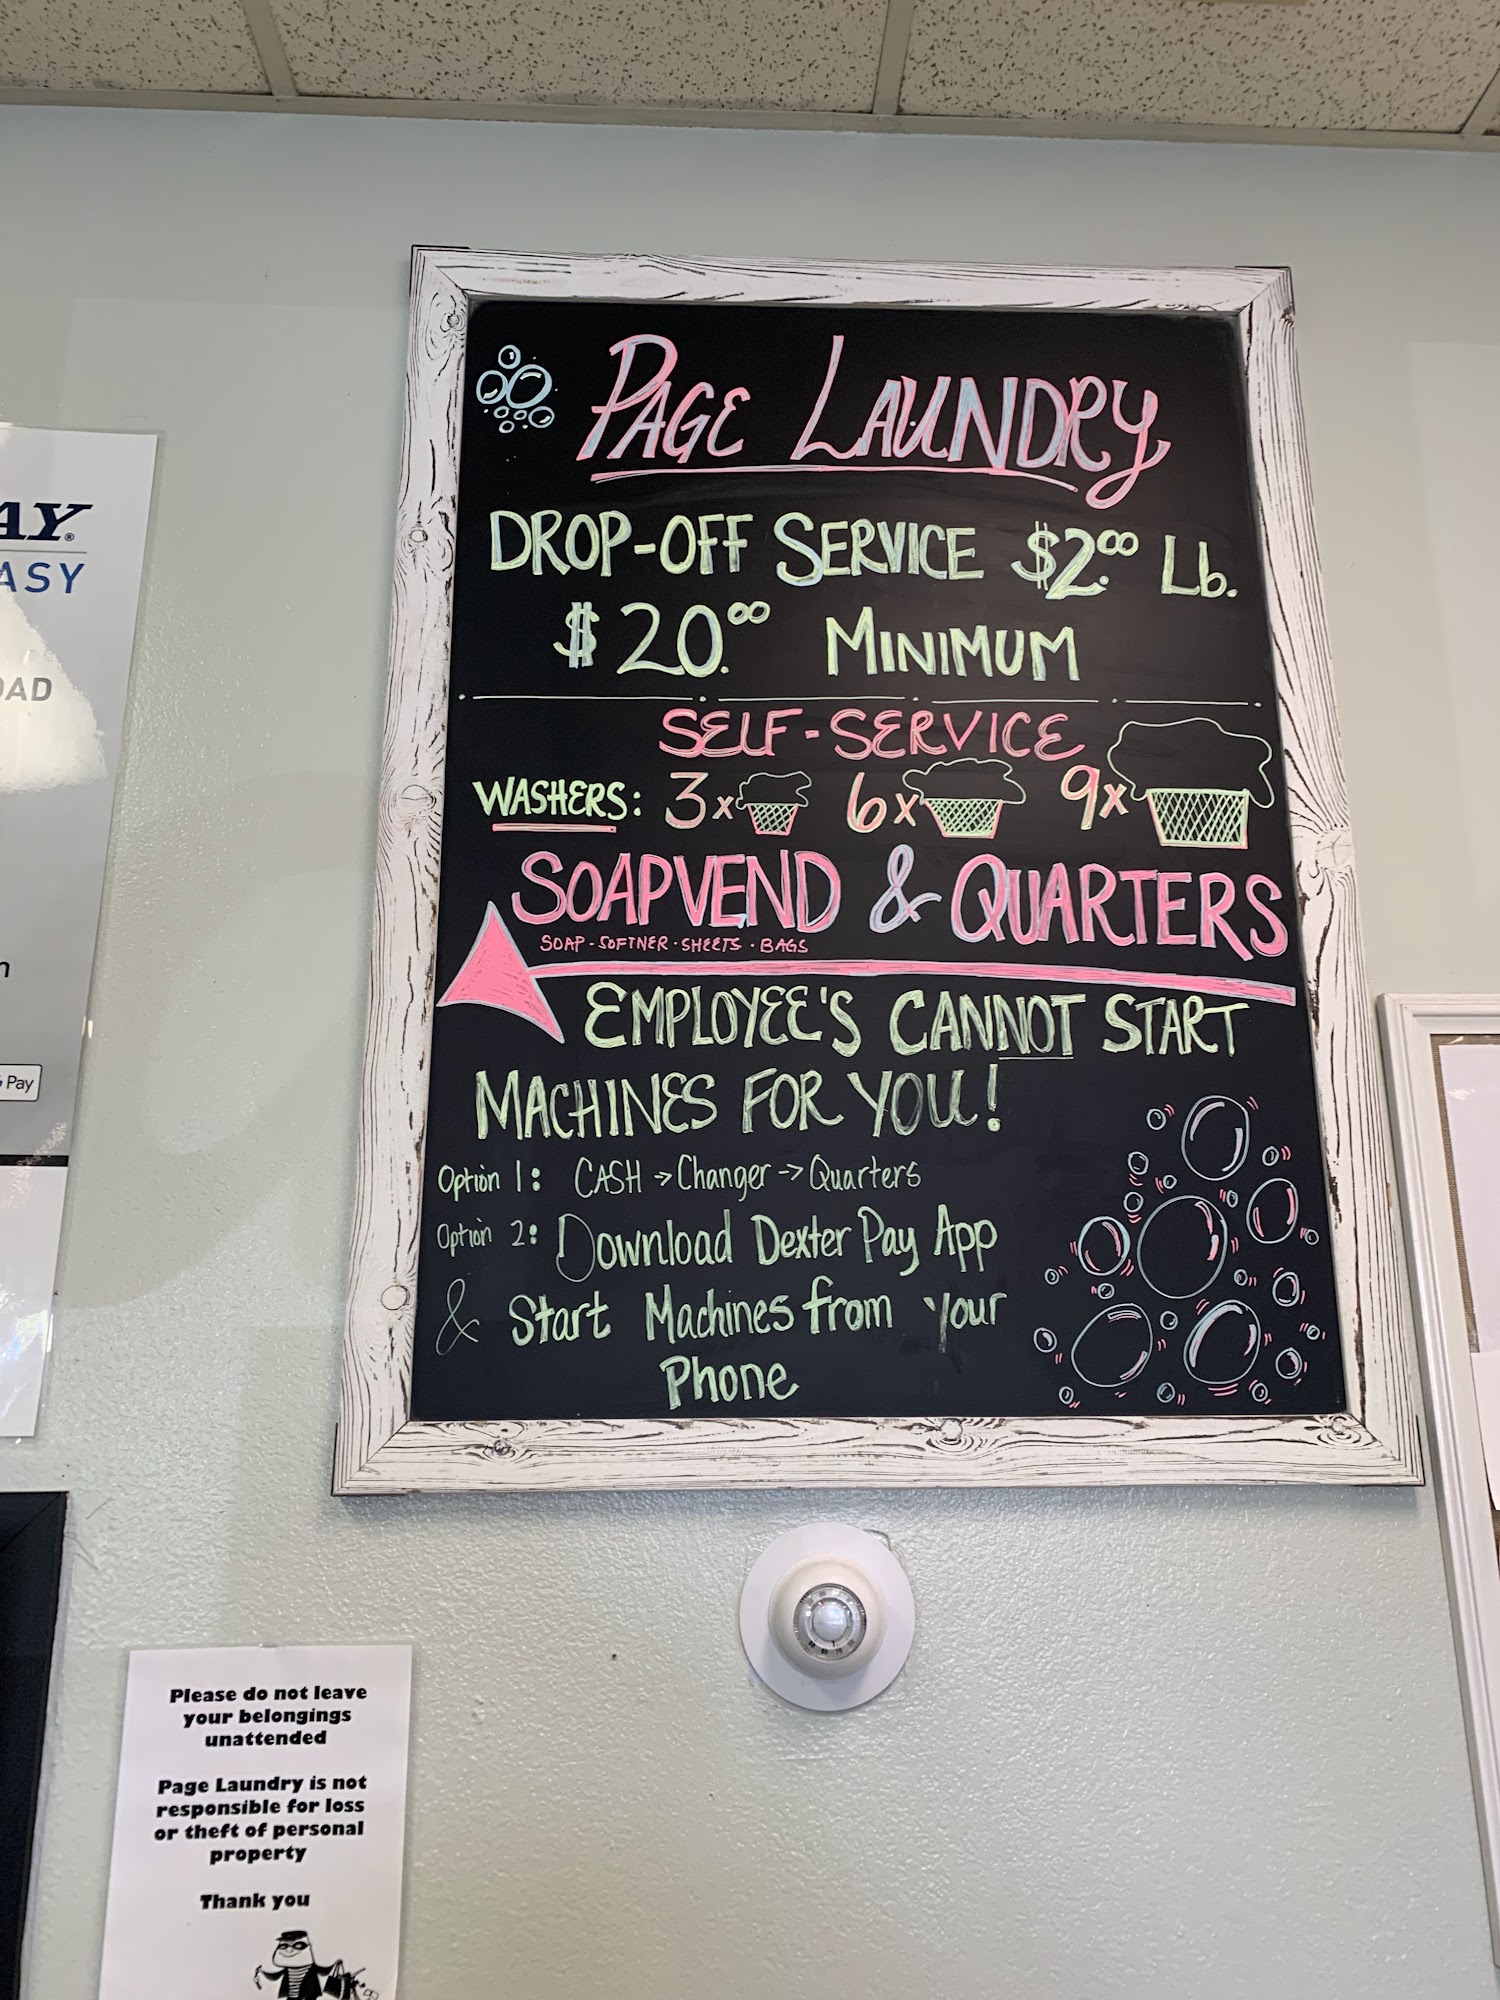 PAGE LAUNDRY
DROP-OFF SERVICE $2.00 Lb.
$20.00 MINIMUM
SELF-SERVICE
WASHERS: 3x 6x 9x
SOAPVEND & QUARTERS
SOAP - SOFTNER · SHEETS · BAGS
EMPLOYEE'S CANNOT START
MACHINES FOR YOU!
Option 1: CASH → Changer → Quarters
Option 2: Download Dexter Pay App
& Start Machines from your
Phone
AY®
ASY
OAD
n
Pay
Please do not leave
your belongings
unattended
Page Laundry is not
responsible for loss
or theft of personal
property
Thank you